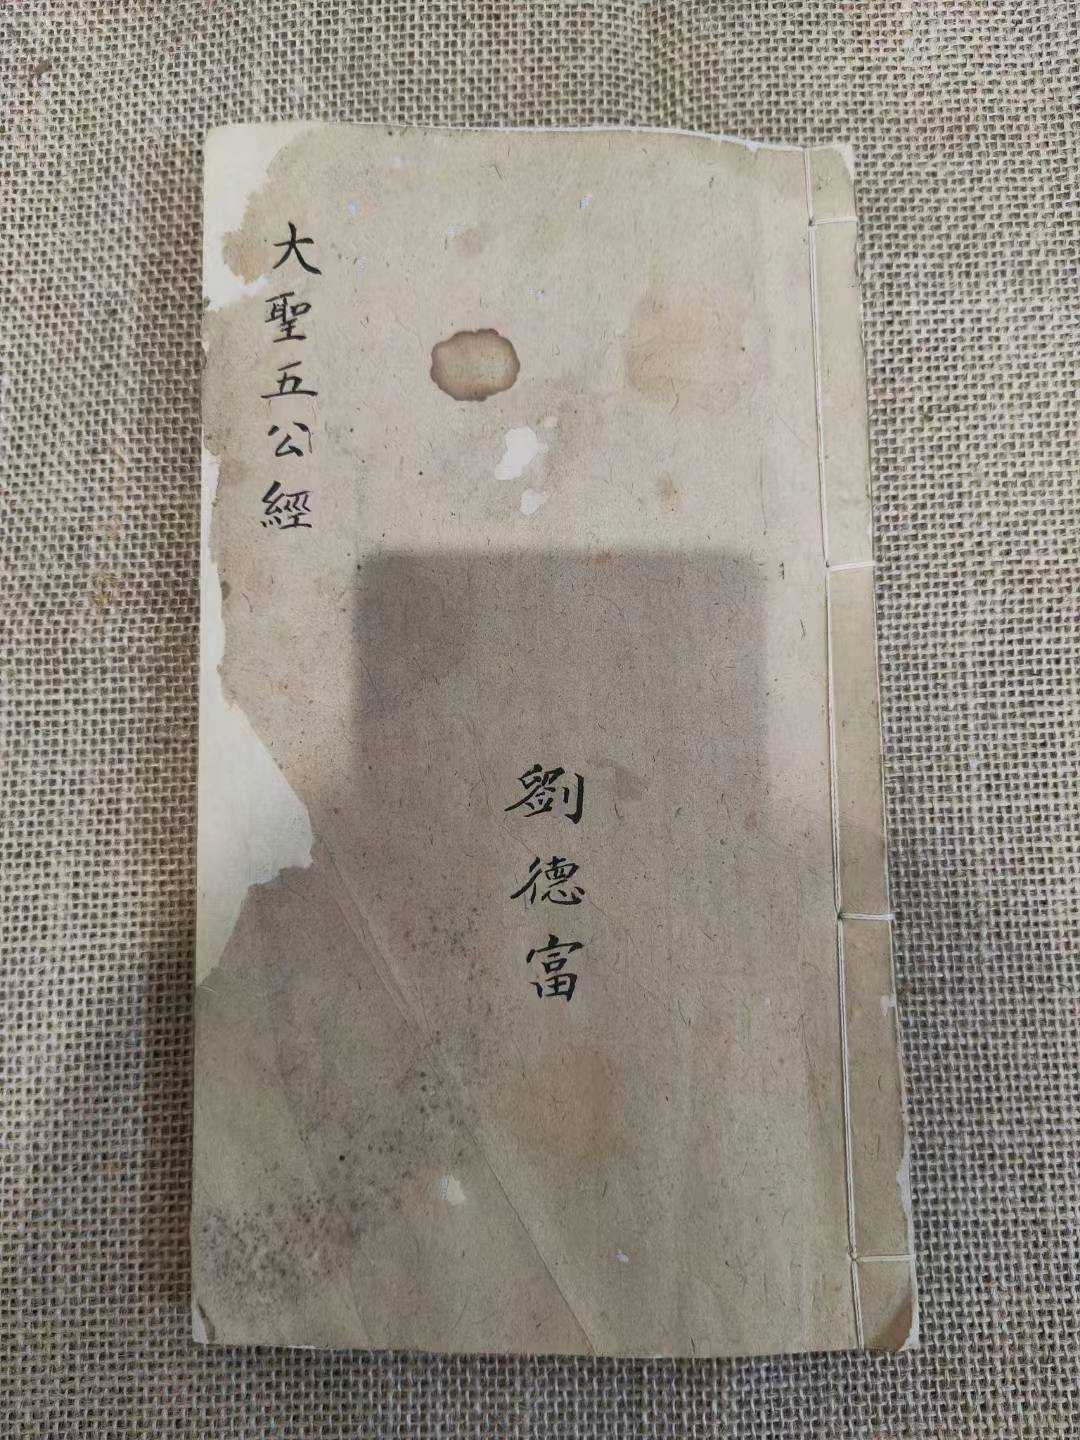 大聖五公經
劉德富